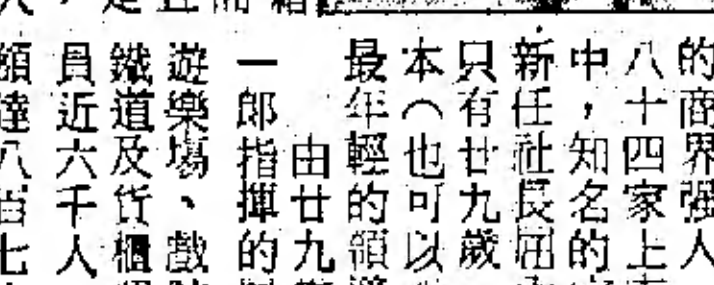 的商界强人
八十四家上
中，知名的
新任社長屈
只有廿九歲
本（也可以
最年輕的領
由廿九
一郎指揮的
遊樂場、戲
鐵道及貨櫃
員近六千人
額達八百七